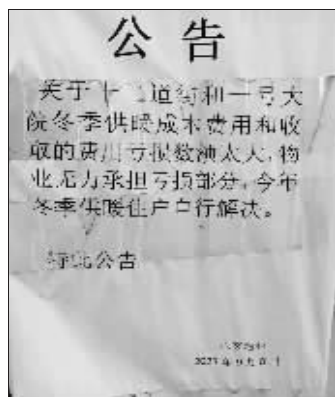 公告
关于十二道街和一号大
院冬季供暖成本费用和收
取的费用亏损数额太大，物
业无力承担亏损部分，今年
冬季供暖住户自行解决。
特此公告